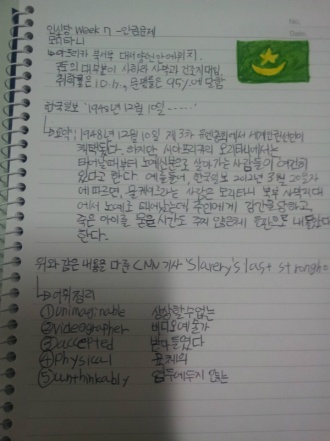 인성반 Week 7 - 인권문제
모리타니
↳ 아프리카 북서부 대서양 연안에 위치.
국토의 대부분이 사하라 사막과 건조지대임.
취학률은 10%, 문맹률은 95%에 달함
한국일보 '1948년 12월 10일 ......'
↳ 요약: 1948년 12월 10일 제3차 유엔총회에서 세계인권선언이
채택된다. 하지만 서아프리카의 모리타니에서는
태어날때부터 노예신분으로 살아가는 사람들이 여전히
있다고 한다. 예를들어, 한국일보 2012년 3월 20일자
에 따르면, 물케이르라는 사람은 모리타니 북부 사막지대
에서 노예로 태어났는데 주인에게 강간을 당하고,
죽은 아이를 묻을시간도 주지 않은채 일터로 내몰았다
한다.
위와 같은 내용을 다룬 CNN 기사 'Slavery's last strongho
↳ 어휘정리
① unimaginable 상상할수없는
② videographer 비디오예술가
③ accepted 받아들였다
④ physical 육체의
⑤ unthinkably 염두에두지 않는